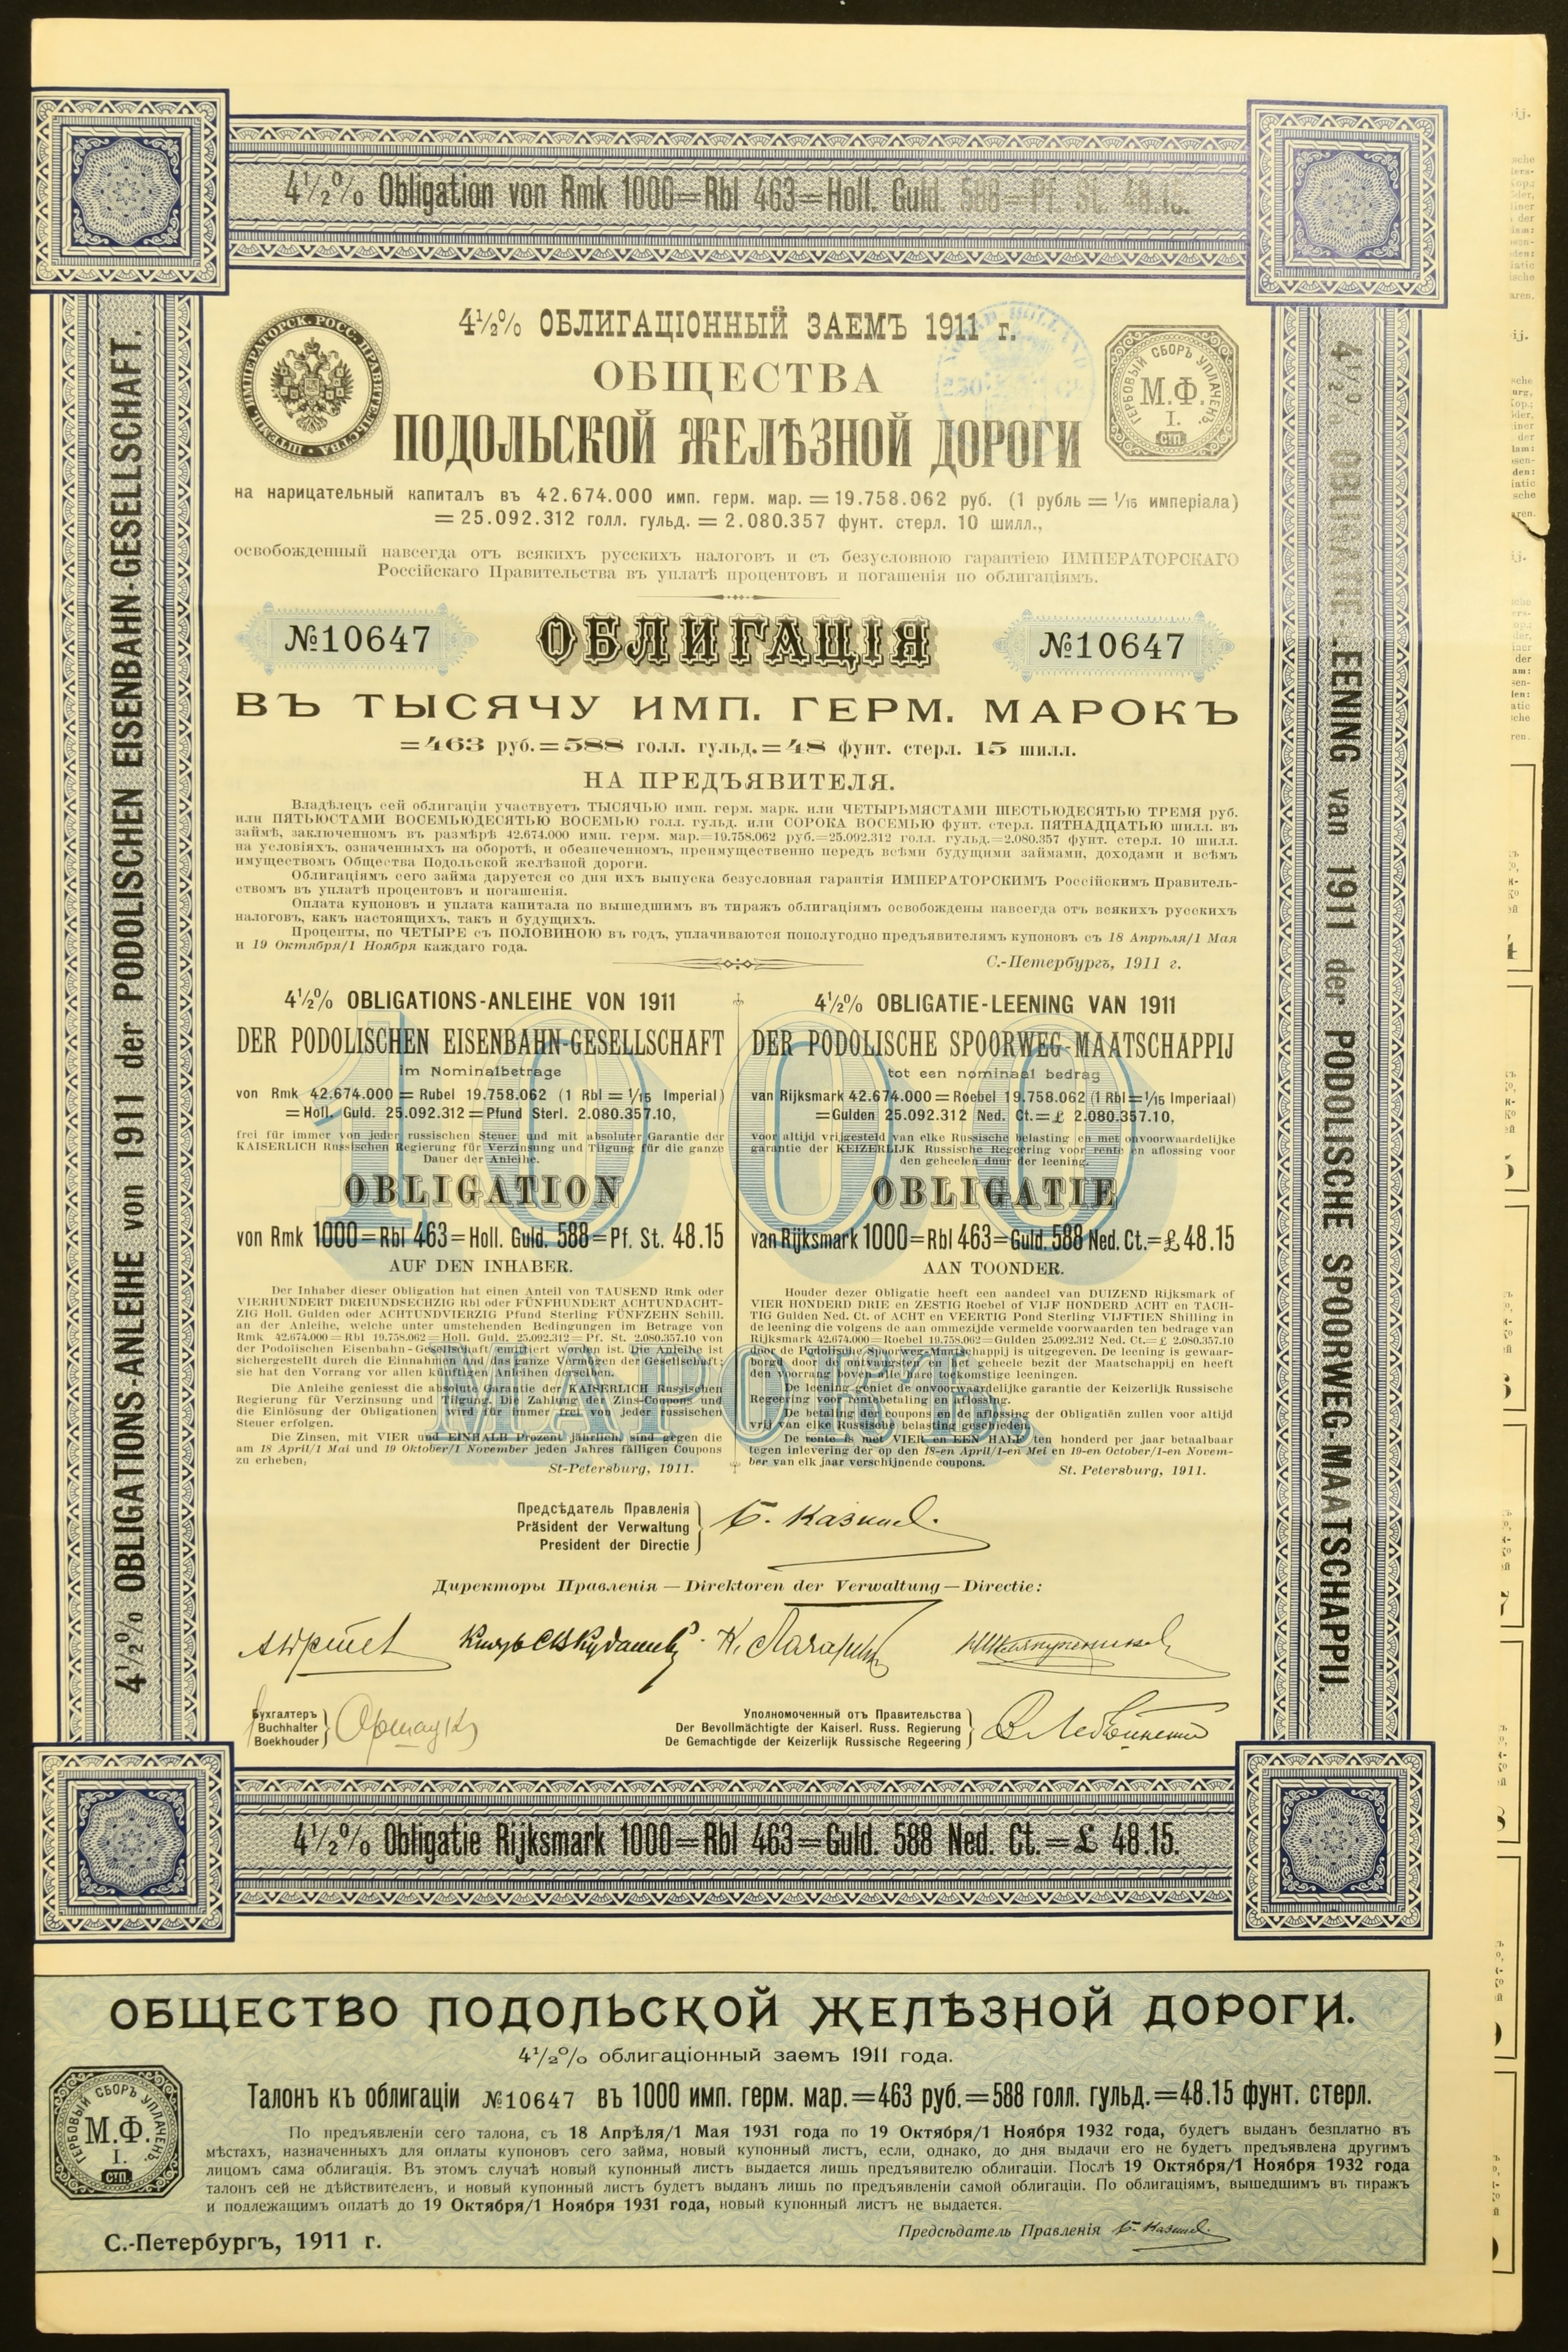 4½% Obligation von Rmk 1000=Rbl 463=Holl. Guld. 588=Pf. St. 48.15.
4½% OBLIGATIONS-ANLEIHE von 1911 der PODOLISCHEN EISENBAHN-GESELLSCHAFT.
4½% OBLIGATIE-LEENING van 1911 der PODOLISCHE SPOORWEG-MAATSCHAPPIJ.
ПЕЧАТЬ ИМПЕРАТОРСК. РОСС. ПРАВИТЕЛЬСТВА
4½% ОБЛИГАЦІОННЫЙ ЗАЕМЪ 1911 г.
ОБЩЕСТВА
ПОДОЛЬСКОЙ ЖЕЛѢЗНОЙ ДОРОГИ
ГЕРБОВЫЙ СБОРЪ УПЛАЧЕНЪ.
М.Ф.
I.
СТП.
на нарицательный капиталъ въ 42.674.000 имп. герм. мар. = 19.758.062 руб. (1 рубль = 1/15 имперіала)
= 25.092.312 голл. гульд. = 2.080.357 фунт. стерл. 10 шилл.,
освобожденный навсегда отъ всякихъ русскихъ налоговъ и съ безусловною гарантіею ИМПЕРАТОРСКАГО
Россійскаго Правительства въ уплатѣ процентовъ и погашенія по облигаціямъ.
№10647 ОБЛИГАЦІЯ №10647
ВЪ ТЫСЯЧУ ИМП. ГЕРМ. МАРОКЪ
=463 руб.=588 голл. гульд.=48 фунт. стерл. 15 шилл.
НА ПРЕДЪЯВИТЕЛЯ.
Владѣлецъ сей облигаціи участвуетъ ТЫСЯЧЬЮ имп. герм. марк. или ЧЕТЫРЬМЯСТАМИ ШЕСТЬЮДЕСЯТЬЮ ТРЕМЯ руб.
или ПЯТЬЮСТАМИ ВОСЕМЬЮДЕСЯТЬЮ ВОСЕМЬЮ голл. гульд. или СОРОКА ВОСЕМЬЮ фунт. стерл. ПЯТНАДЦАТЬЮ шилл. въ
займѣ, заключенномъ въ размѣрѣ 42.674.000 имп. герм. мар.=19.758.062 руб.=25.092.312 голл. гульд.=2.080.357 фунт. стерл. 10 шилл.
на условіяхъ, означенныхъ на оборотѣ, и обезпеченномъ, преимущественно передъ всѣми будущими займами, доходами и всѣмъ
имуществомъ Общества Подольской желѣзной дороги.
Облигаціямъ сего займа даруется со дня ихъ выпуска безусловная гарантія ИМПЕРАТОРСКИМЪ Россійскимъ Правитель-
ствомъ въ уплатѣ процентовъ и погашенія.
Оплата купоновъ и уплата капитала по вышедшимъ въ тиражъ облигаціямъ освобождены навсегда отъ всякихъ русскихъ
налоговъ, какъ настоящихъ, такъ и будущихъ.
Проценты, по ЧЕТЫРЕ съ ПОЛОВИНОЮ въ годъ, уплачиваются пополугодно предъявителямъ купоновъ съ 18 Апрѣля/1 Мая
и 19 Октября/1 Ноября каждаго года.
С.-Петербургъ, 1911 г.
1000
МАРОКЪ.
4½% OBLIGATIONS-ANLEIHE VON 1911
DER PODOLISCHEN EISENBAHN-GESELLSCHAFT
im Nominalbetrage
von Rmk 42.674.000 = Rubel 19.758.062 (1 Rbl = 1/15 Imperial)
= Holl. Guld. 25.092.312 = Pfund Sterl. 2.080.357.10,
frei für immer von jeder russischen Steuer und mit absoluter Garantie der
KAISERLICH Russischen Regierung für Verzinsung und Tilgung für die ganze
Dauer der Anleihe.
OBLIGATION
von Rmk 1000=Rbl 463=Holl. Guld. 588=Pf. St. 48.15
AUF DEN INHABER.
Der Inhaber dieser Obligation hat einen Anteil von TAUSEND Rmk oder
VIERHUNDERT DREIUNDSECHZIG Rbl oder FÜNFHUNDERT ACHTUNDACHT-
ZIG Holl. Gulden oder ACHTUNDVIERZIG Pfund Sterling FÜNFZEHN Schill.
an der Anleihe, welche unter umstehenden Bedingungen im Betrage von
Rmk 42.674.000 = Rbl 19.758.062 = Holl. Guld. 25.092.312 = Pf. St. 2.080.357.10 von
der Podolischen Eisenbahn-Gesellschaft emittiert worden ist. Die Anleihe ist
sichergestellt durch die Einnahmen und das ganze Vermögen der Gesellschaft;
sie hat den Vorrang vor allen künftigen Anleihen derselben.
Die Anleihe geniesst die absolute Garantie der KAISERLICH Russischen
Regierung für Verzinsung und Tilgung. Die Zahlung der Zins-Coupons und
die Einlösung der Obligationen wird für immer frei von jeder russischen
Steuer erfolgen.
Die Zinsen, mit VIER und EINHALB Prozent jährlich, sind gegen die
am 18 April/1 Mai und 19 Oktober/1 November jeden Jahres fälligen Coupons
zu erheben,
St-Petersburg, 1911.
4½% OBLIGATIE-LEENING VAN 1911
DER PODOLISCHE SPOORWEG-MAATSCHAPPIJ
tot een nominaal bedrag
van Rijksmark 42.674.000 = Roebel 19.758.062 (1 Rbl = 1/15 Imperiaal)
= Gulden 25.092.312 Ned. Ct. = £ 2.080.357.10,
voor altijd vrijgesteld van elke Russische belasting en met onvoorwaardelijke
garantie der KEIZERLIJK Russische Regeering voor rente en aflossing voor
den geheelen duur der leening.
OBLIGATIE
van Rijksmark 1000=Rbl 463=Guld. 588 Ned. Ct.=£ 48.15
AAN TOONDER.
Houder dezer Obligatie heeft een aandeel van DUIZEND Rijksmark of
VIER HONDERD DRIE en ZESTIG Roebel of VIJF HONDERD ACHT en TACH-
TIG Gulden Ned. Ct. of ACHT en VEERTIG Pond Sterling VIJFTIEN Shilling in
de leening die volgens de aan ommezijde vermelde voorwaarden ten bedrage van
Rijksmark 42.674.000 = Roebel 19.758.062 = Gulden 25.092.312 Ned. Ct. = £ 2.080.357.10
door de Podolische Spoorweg-Maatschappij is uitgegeven. De leening is gewaar-
borgd door de ontvangsten en het geheele bezit der Maatschappij en heeft
den voorrang boven alle hare toekomstige leeningen.
De leening geniet de onvoorwaardelijke garantie der Keizerlijk Russische
Regeering voor rentebetaling en aflossing.
De betaling der coupons en de aflossing der Obligatiën zullen voor altijd
vrij van elke Russische belasting geschieden.
De rente is met VIER en EEN HALF ten honderd per jaar betaalbaar
tegen inlevering der op den 18-en April/1-en Mei en 19-en October/1-en Novem-
ber van elk jaar verschijnende coupons.
St. Petersburg, 1911.
Предсѣдатель Правленія
Präsident der Verwaltung
President der Directie
Директоры Правленія — Direktoren der Verwaltung — Directie:
Бухгалтеръ
Buchhalter
Boekhouder
Уполномоченный отъ Правительства
Der Bevollmächtigte der Kaiserl. Russ. Regierung
De Gemachtigde der Keizerlijk Russische Regeering
4½% Obligatie Rijksmark 1000=Rbl 463=Guld. 588 Ned. Ct.=£ 48.15.
ОБЩЕСТВО ПОДОЛЬСКОЙ ЖЕЛѢЗНОЙ ДОРОГИ.
4½% облигаціонный заемъ 1911 года.
Талонъ къ облигаціи №10647 въ 1000 имп. герм. мар.=463 руб.=588 голл. гульд.=48.15 фунт. стерл.
ГЕРБОВЫЙ СБОРЪ УПЛАЧЕНЪ
М.Ф.
I.
СТП.
По предъявленіи сего талона, съ 18 Апрѣля/1 Мая 1931 года по 19 Октября/1 Ноября 1932 года, будетъ выданъ безплатно въ
мѣстахъ, назначенныхъ для оплаты купоновъ сего займа, новый купонный листъ, если, однако, до дня выдачи его не будетъ предъявлена другимъ
лицомъ сама облигація. Въ этомъ случаѣ новый купонный листъ выдается лишь предъявителю облигаціи. Послѣ 19 Октября/1 Ноября 1932 года
талонъ сей не дѣйствителенъ, и новый купонный листъ будетъ выданъ лишь по предъявленіи самой облигаціи. По облигаціямъ, вышедшимъ въ тиражъ
и подлежащимъ оплатѣ до 19 Октября/1 Ноября 1931 года, новый купонный листъ не выдается.
С.-Петербургъ, 1911 г.
Предсѣдатель Правленія